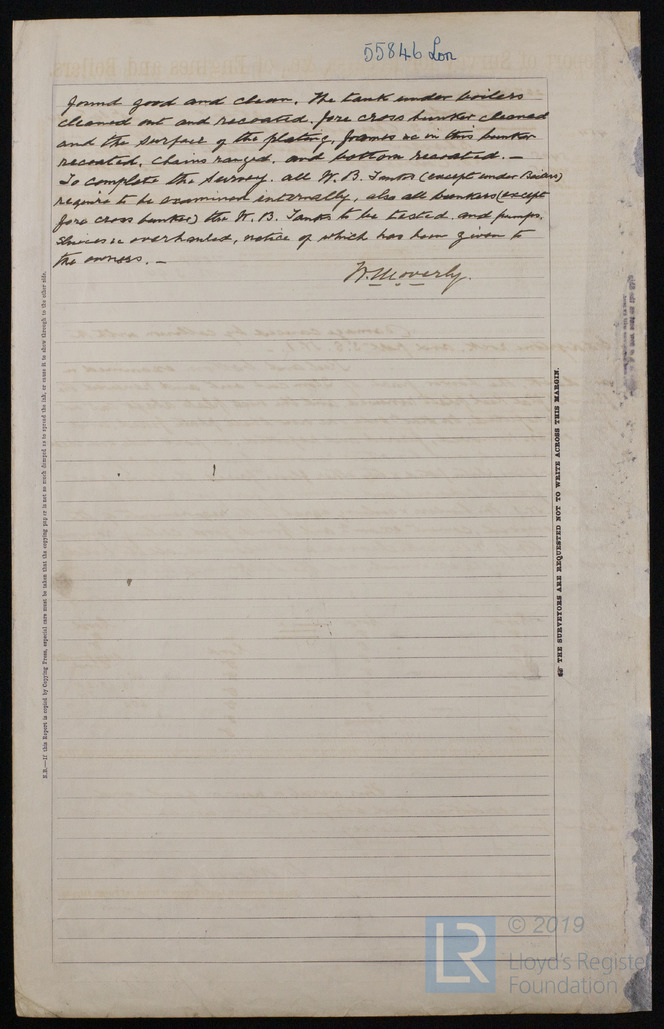 55846 Lon
found good and clean. The tank under boilers
cleaned out and recoated. fore cross bunker cleaned
and the surface of the plating, frames &c in this bunker
recoated. Chains ranged. and bottom recoated. —
To complete the survey. all W. B. Tanks (except under Boilers)
require to be examined internally, also all bunkers (except
fore cross bunker) the W. B. Tanks to be tested. and pumps.
Sluices &c overhauled, notice of which has been given to
the owners. —
W. Moverly.
N.B.—If this Report is copied by Copying Press, especial care must be taken that the copying pap er is not so much damped as to spread the ink, or cause it to show through to the other side.
☞ THE SURVEYORS ARE REQUESTED NOT TO WRITE ACROSS THIS MARGIN.
LR
© 2019
Lloyd's Register
Foundation